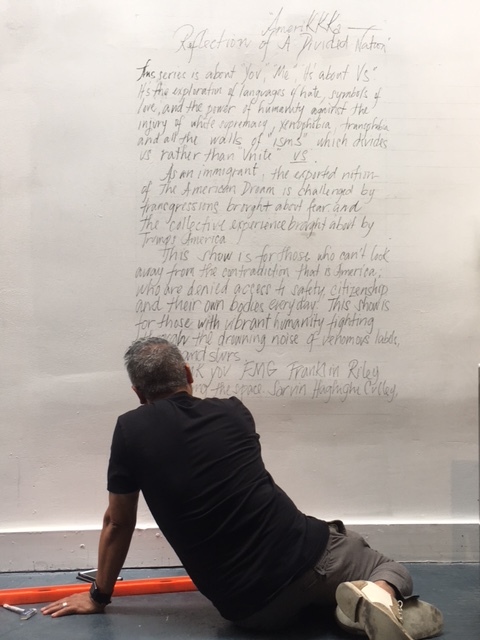 "AmeriKKKa —
Reflection of A Divided Nation"
This series is about "You", "Me", It's about Us"
It's the exploration of languages of hate, symbols of
love, and the power of humanity against the
injury of white supremacy, xenophobia, transphobia
and all the walls of "isms" which divides
us rather than "Unite" us.
As an immigrant, the exported notion
of The American Dream is challenged by
transgressions brought about fear and
The collective experience brought about by
Trump's America
This show is for those who can't look
away from the contradiction that is America;
who are denied access to safety, citizenship
and their own bodies everyday. This show is
for those with vibrant humanity fighting
the drowning noise of venomous labels,
and slurs.
you FMG Franklin Riley
the space. Sarvin Haghighe